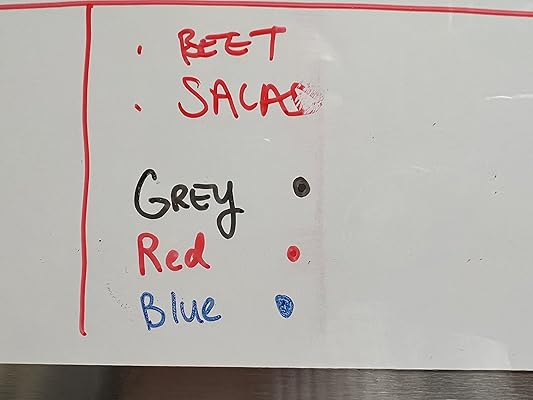 · BEET
· SALAD
GREY
Red
Blue